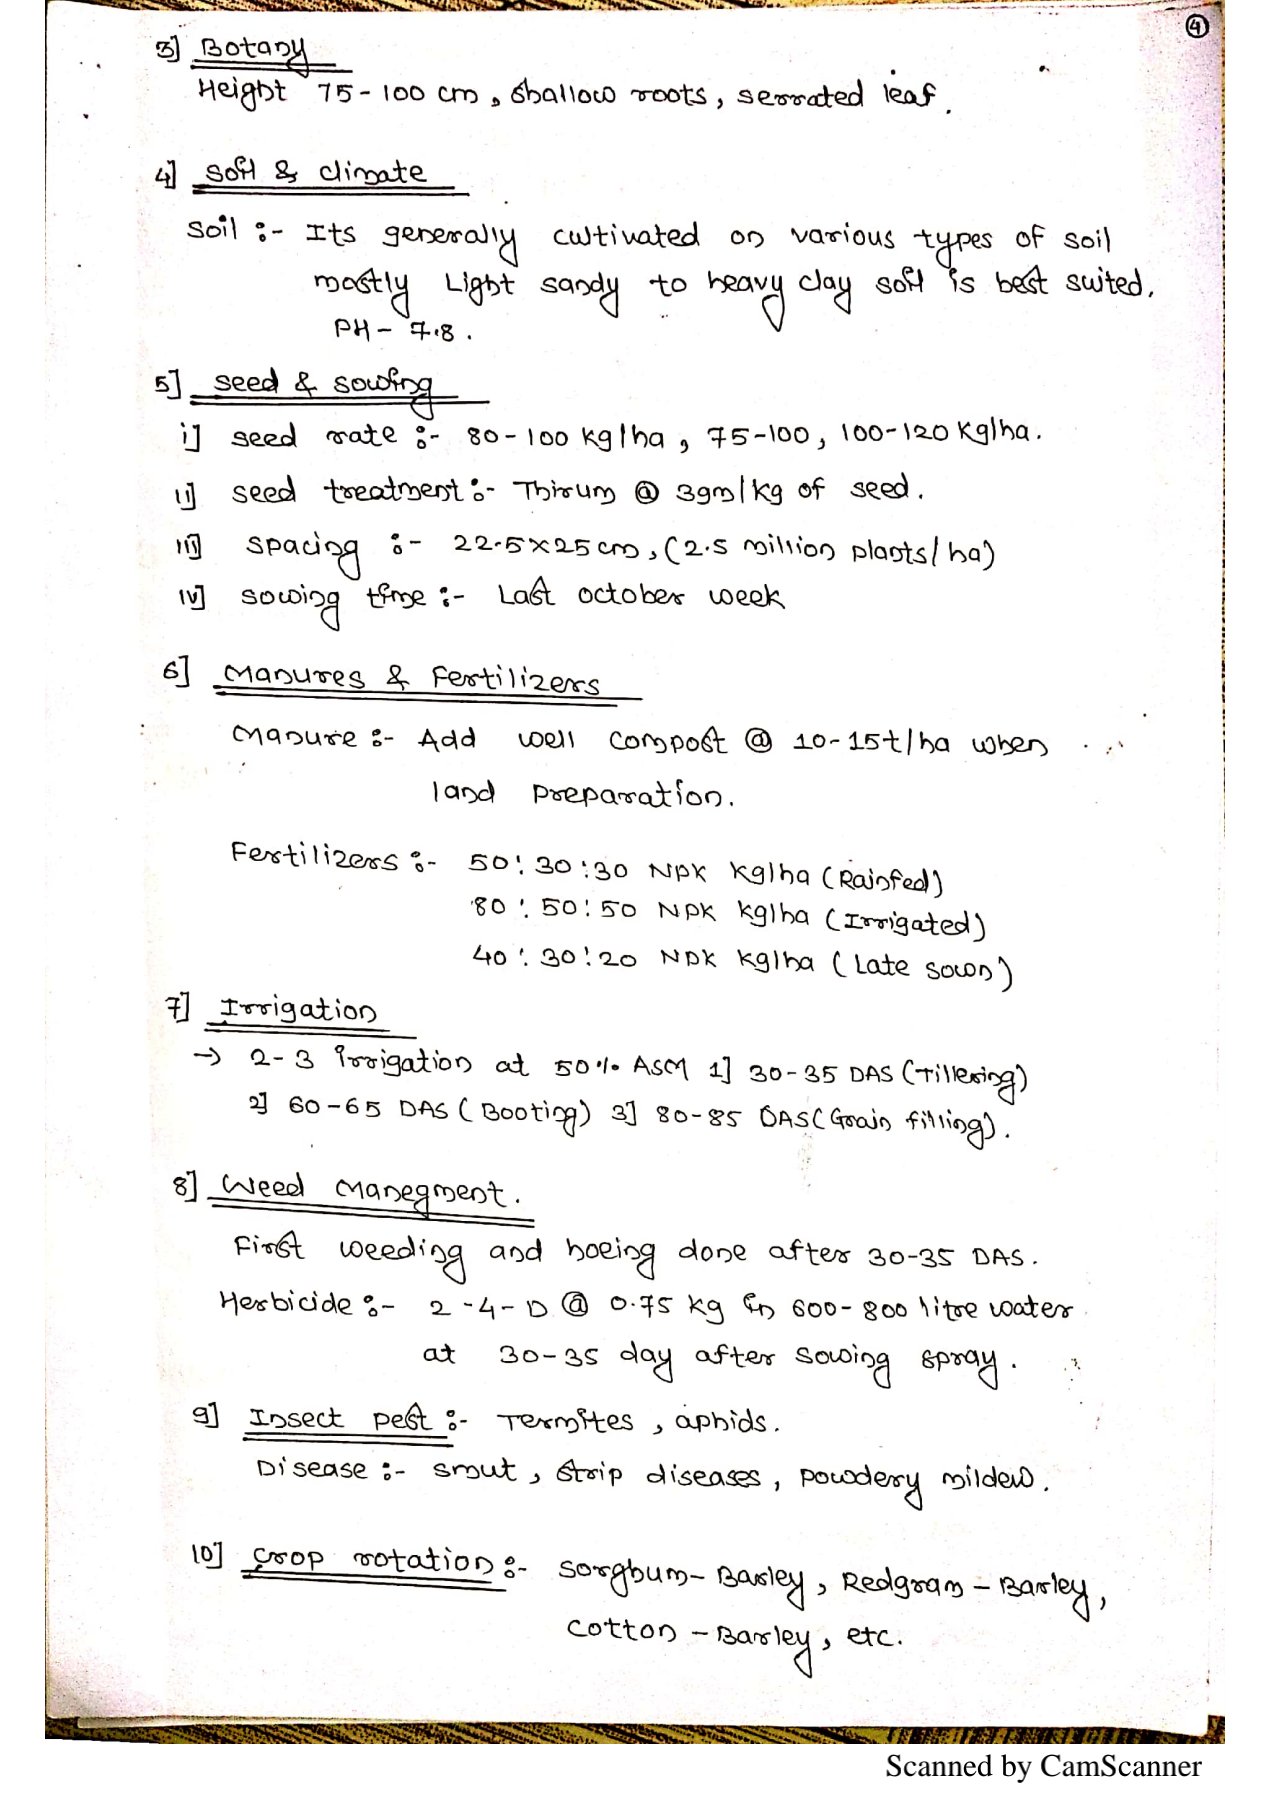 4
3] Botany
Height 75-100 cm, shallow roots, serrated leaf.
4] Soil & climate
Soil :- Its generally cultivated on various types of soil
mostly Light sandy to heavy clay soil is best suited.
PH - 7.8.
5] seed & sowing
i] seed rate :- 80-100 kg/ha, 75-100, 100-120 kg/ha.
ii] seed treatment :- Thirum @ 3gm/kg of seed.
iii] spacing :- 22.5x25 cm, (2.5 million plants/ha)
iv] sowing time :- Last october week
6] Manures & Fertilizers
Manure :- Add well compost @ 10-15t/ha when
land preparation.
Fertilizers :- 50:30:30 NPK kg/ha (Rainfed)
80:50:50 NPK kg/ha (Irrigated)
40:30:20 NPK kg/ha (Late sown)
7] Irrigation
→ 2-3 irrigation at 50% ASM 1] 30-35 DAS (Tillering)
2] 60-65 DAS (Booting) 3] 80-85 DAS (Grain filling).
8] Weed Manegment.
First weeding and hoeing done after 30-35 DAS.
Herbicide :- 2-4-D @ 0.75 kg in 600-800 litre water
at 30-35 day after sowing spray.
9] Insect pest :- Termites, aphids.
Disease :- smut, strip diseases, powdery mildew.
10] Crop rotation :- Sorghum-Barley, Redgram-Barley,
Cotton-Barley, etc.
Scanned by CamScanner